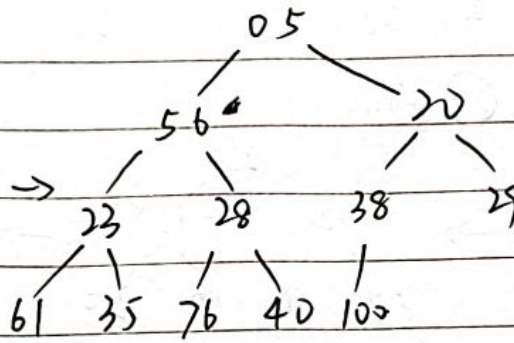 05
56 20
→ 23 28 38
61 35 76 40 100